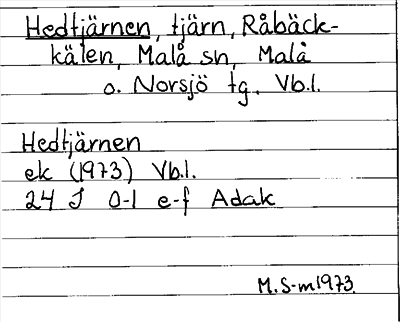 Hedtjärnen, tjärn, Råbäck-
kälen, Malå sn, Malå
o. Norsjö tg. Vb.l.
Hedtjärnen
ek (1973) Vb.l.
24 J 0-1 e-f Adak
M.S-m 1973.